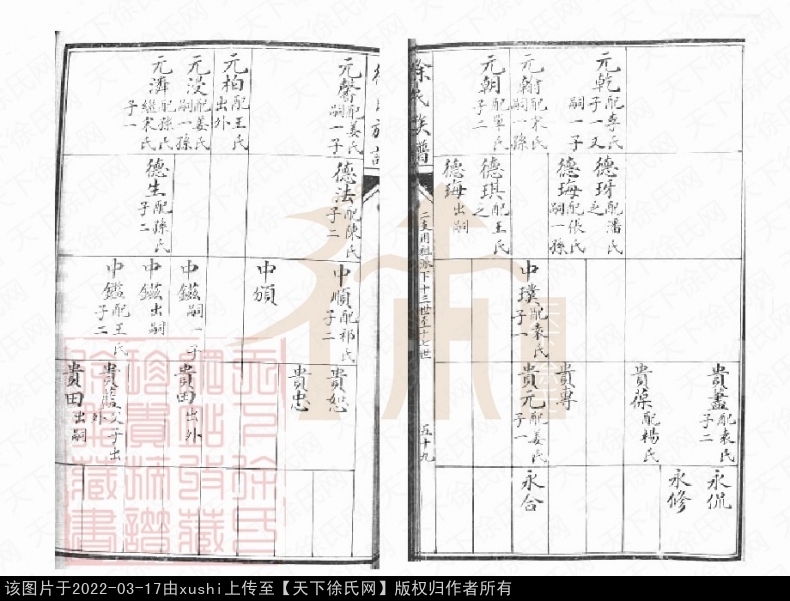 元乾配李氏子一又嗣一子
元翰配宋氏嗣一孫
元朝配單氏子二
德玡配潘氏子之
德珻配張氏嗣一孫
德琪配王氏之
德珻出嗣
中璞配袁氏子一
貴盡配袁氏子二
貴葆配楊氏
貴專
貴元配姜氏子一
永侃
永修
永合
徐氏族譜
二支用祖派下十三世至十七世
五十九
元馨配姜氏嗣一子
元柏配王氏出外
元沒配姜氏嗣一孫
元濟配孫氏繼宋氏子一
德法配陳氏子二
德生配陳氏子二
中順配祁氏子二
中頒
中鎡嗣一子
中鎡出嗣
中鑑配王氏子二
貴恕
貴忠
貴田出外
貴藍又子出外
貴田出嗣
天下徐氏网
该图片于2022-03-17由xushi上传至【天下徐氏网】版权归作者所有